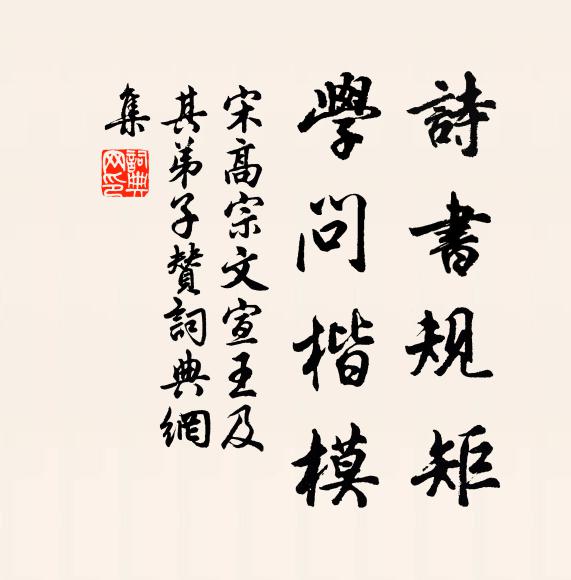 詩書規矩
學問楷模
宋高宗文宣王及
其弟子贊詞典網
集
詞典
网印